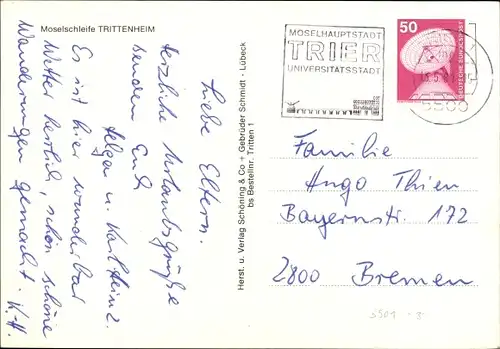 Moselschleife TRITTENHEIM
Liebe Eltern.
Herzliche Urlaubsgrüße
senden Euch
Helga u. Karl Heinz.
Es ist hier wunderbar
Wetter herrlich, schon schöne
Wanderungen gemacht. K.-H.
Herst. u. Verlag Schöning & Co + Gebrüder Schmidt - Lübeck
bs Bestellnr. Tritten 1
MOSELHAUPTSTADT
TRIER
UNIVERSITÄTSSTADT
50
DEUTSCHE BUNDESPOST
5500
Familie
Hugo Thien
Bayernstr. 172
2800 Bremen